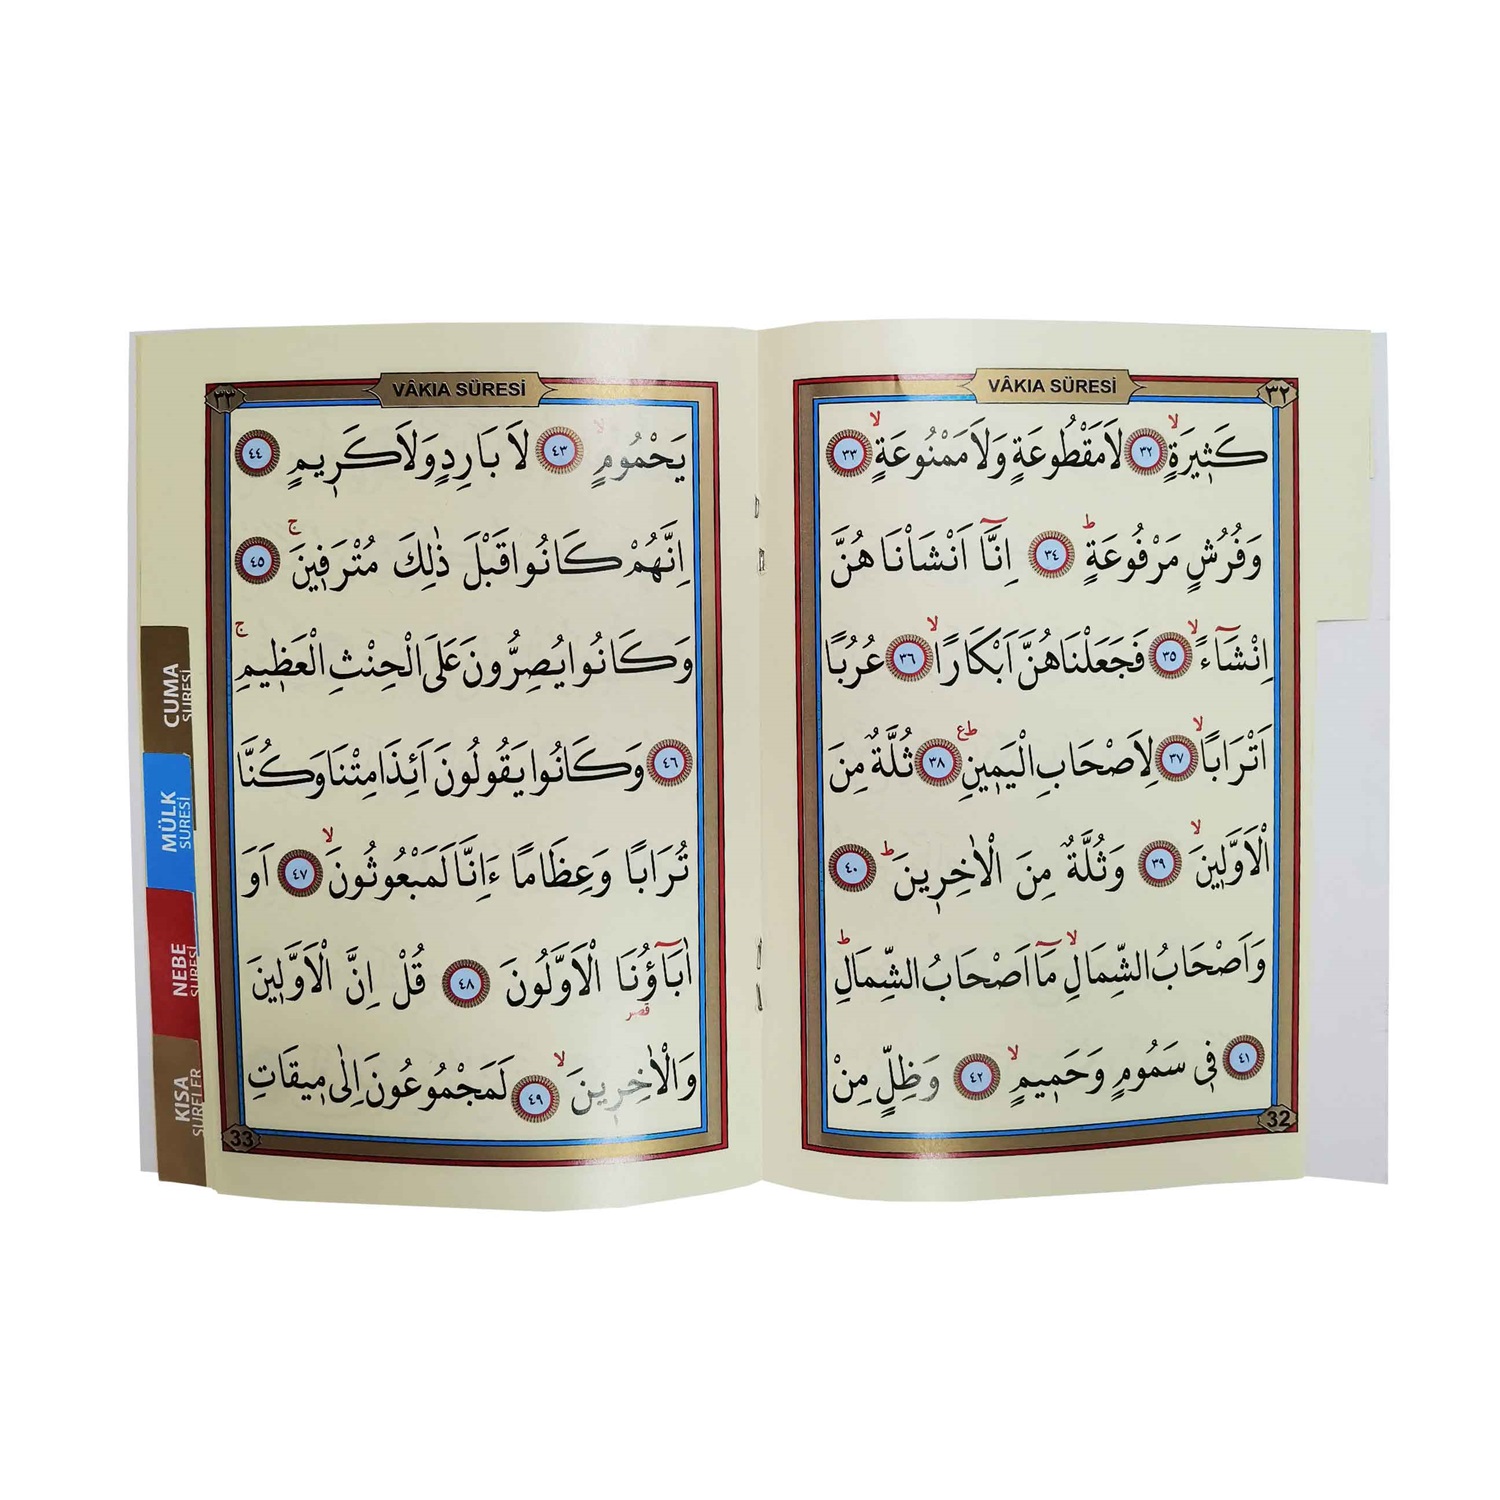 VÂKIA SÛRESİ
٣٢
كَث۪يرَةٍۙ ﴿٣٢﴾ لَا مَقْطُوعَةٍ وَلَا مَمْنُوعَةٍۙ ﴿٣٣﴾
وَفُرُشٍ مَرْفُوعَةٍۜ ﴿٣٤﴾ اِنَّٓا اَنْشَأْنَا هُنَّ
اِنْشَٓاءًۙ ﴿٣٥﴾ فَجَعَلْنَاهُنَّ اَبْكَارًاۙ ﴿٣٦﴾ عُرُبًا
اَتْرَابًاۙ ﴿٣٧﴾ لِاَصْحَابِ الْيَم۪ينِ ط ع ﴿٣٨﴾ ثُلَّةٌ مِنَ
الْاَوَّل۪ينَۙ ﴿٣٩﴾ وَثُلَّةٌ مِنَ الْاٰخِر۪ينَۜ ﴿٤٠﴾
وَاَصْحَابُ الشِّمَالِۙ مَٓا اَصْحَابُ الشِّمَالِۜ
﴿٤١﴾ ف۪ي سَمُومٍ وَحَم۪يمٍۙ ﴿٤٢﴾ وَظِلٍّ مِنْ
32
VÂKIA SÛRESİ
٣٣
يَحْمُومٍۙ ﴿٤٣﴾ لَا بَارِدٍ وَلَا كَر۪يمٍ ﴿٤٤﴾
اِنَّهُمْ كَانُوا قَبْلَ ذٰلِكَ مُتْرَف۪ينَۚ ﴿٤٥﴾
وَكَانُوا يُصِرُّونَ عَلَى الْحِنْثِ الْعَظ۪يمِۚ
﴿٤٦﴾ وَكَانُوا يَقُولُونَ اَئِذَا مِتْنَا وَكُنَّا
تُرَابًا وَعِظَامًا ءَاِنَّا لَمَبْعُوثُونَۙ ﴿٤٧﴾ اَوَ
اٰبَٓاؤُ۬نَا الْاَوَّلُونَ ﴿٤٨﴾ قُلْ اِنَّ الْاَوَّل۪ينَ
قصر
وَالْاٰخِر۪ينَۙ ﴿٤٩﴾ لَمَجْمُوعُونَ اِلٰى م۪يقَاتِ
33
CUMA
SURESİ
MÜLK
SURESİ
NEBE
SURESİ
KISA
SURELER